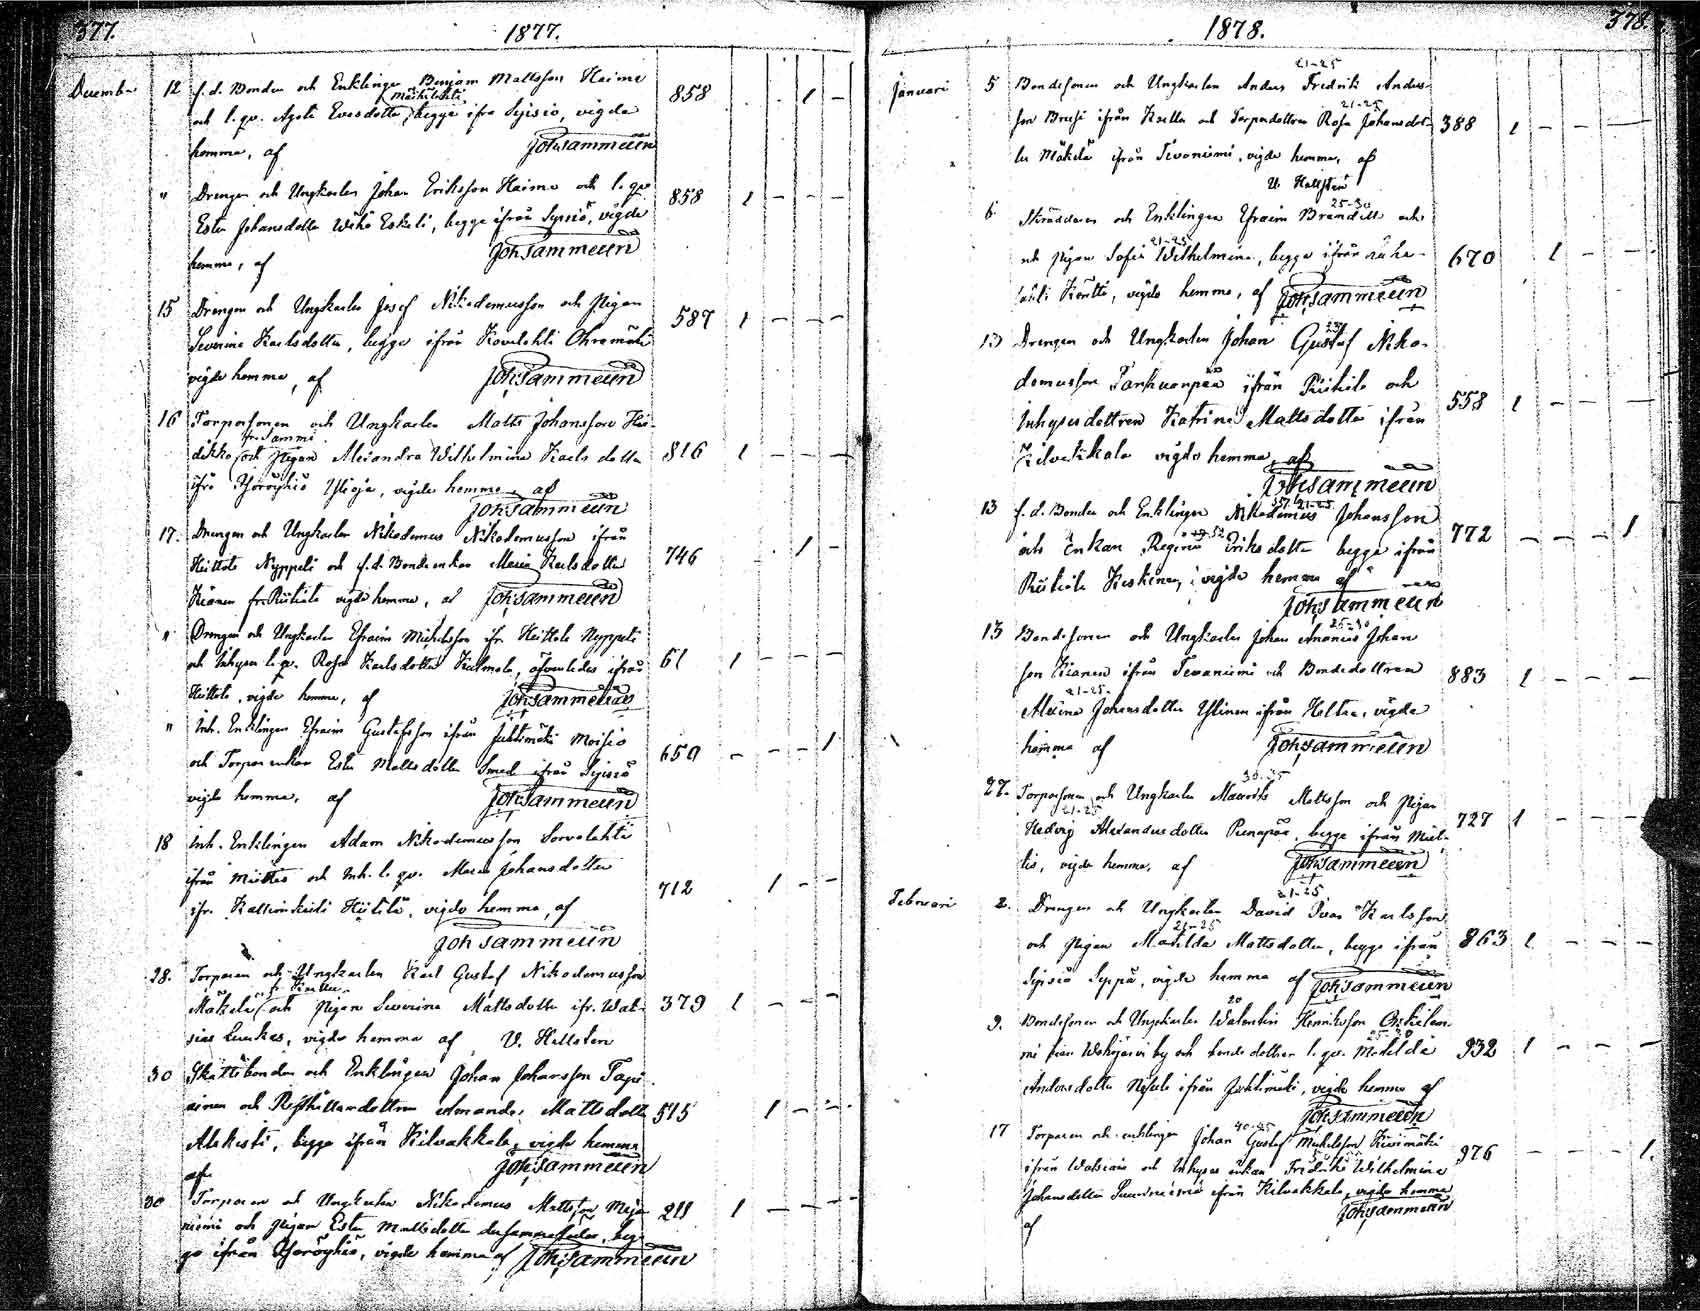 377.
1877.
December 12 f. d. Bonden och Enklingen Benjam Mattsson Heimo
och l. qv. Agata Evesdotter, begge ifrå Sijsiö, vigde 858 1 -
hemma, af Joh Sammeun
" Drengen och Ungkarlen Johan Eriksson Haimo och l. qv.
Ester Johansdotter Wihö Eskeli, begge ifrån Syssiö, vigde 858 1 - - -
hemma, af Joh Sammeun
15 Drengen och Ungkarlen Josef Nikodemusson och pigan
Severina Karlsdotter, begge ifrån Kovelahti Ohramäki 587 1 - - -
vigde hemma, af Joh Sammeun
16 Torparsonen och Ungkarlen Matts Johansson Hei-
fr. Sammi
dikko och pigan Alexandra Wilhelmina Karlsdotter 816 1 - - -
ifrå Ylioja, vigde hemma af
Joh Sammeun
17. Drengen och Ungkarlen Nikodemus Nikodemusson ifrån
Heittola Nyppeli och f. d. Bondenkan Maria Karlsdotter 746 1 -
Kianen fr. Riitiala vigde hemma, af Joh Sammeun
" Drengen och Ungkarlen Efraim Michelsson ifr. Heittola Nyppeli
och Inhyses l. qv. Rosa Karlsdotter Kulmala, äfvenledes ifrån 61 1 - - -
Heittola, vigde hemma, af Joh Sammeun
" Inh. Enklingen Efraim Gustafsson ifrån Juhtimäki Moisio
och Torparenkan Ester Mattsdotter Smed ifrån Sijsiö 650 - - - 1
vigde hemma, af Joh Sammeun
18 Inh. Enklingen Adam Nikodemusson Sorvalahti
ifrån Miettis och Inh. l. qv. Maria Johansdotter 712 1 - -
ifr. Hiitilä, vigde hemma, af
Joh Sammeun
28. Torparen och Ungkarlen Karl Gustaf Nikodemusson
Mäkelä och pigan Severina Mattsdotter ifr. Wat- 379 1 - - -
sias Luukas, vigde hemma af V. Hellsten
30 Skattebonden och Enklingen Johan Johansson Tapi-
ainen och Rusthållardottren Amanda Mattsdott. 515 1 - -
Alakesti, begge ifrån Kilvakkala, vigde hemma
af Joh Sammeun
30 Torparen och Ungkarlen Nikodemus Mattsson Meja-
niemi och pigan Ester Mattsdotter dersammastädes, beg- 211 1 - - -
ge ifrån Höröykiö, vigde hemma af Joh Sammeun
378.
1878.
21-25
Januari 5 Bondesonen och Ungkarlen Anders Fredrik Anders-
21-25
son Brusi ifrån Kselka och Torpardottren Rosa Johansdot- 388 1 - - -
ter Mäkelä ifrån Tevaniemi, vigde hemma, af
V. Hellsten
25-30
6 Skräddaren och Enklingen Efraim Brandell och
21-25
och pigan Sofia Wilhelmina, begge ifrån Röhe- 670 1 - -
Köntti, vigde hemma, af Joh Sammeun
13 Drengen och Ungkarlen Johan Gustaf Niko-
demusson Pankuonpää ifrån Riitiala och 558 1 - - -
Inhysesdottren Katrina Mattsdotter ifrån
Kilvakkala vigde hemma, af
Joh Sammeun
13 f. d. Bonden och Enklingen Nikodemus Johansson
och Enkan Regina Eriksdotter begge ifrån 772 - - - 1
Riitiala Keskinen, vigde hemma af
Joh Sammeun
25-30
13 Bondesonen och Ungkarlen Johan Ananias Johan
son Kianen ifrån Tevaniemi och Bondedottren 883 1 - - -
21-25.
Alexina Johansdotter Ylinen ifrån Heltta, vigde
hemma af Joh Sammeun
30-35
27. Torparsonen och Ungkarlen Maurits Mattsson och pigan
21-25
Hedvig Alexandersdotter Pienapää, begge ifrån Miet- 727 1 - - -
tis, vigde hemma, af Joh Sammeun
21-25
Februari 2. Drengen och Ungkarlen David Ivar Karlsson
21-25
och pigan Matilda Mattsdotter, begge ifrån 863 1 - - -
Sijsiö Seppä, vigde hemma af Joh Sammeun
20
9. Bondesonen och Ungkarlen Walentin Henriksson Onkelan-
25-30
mi från Wehojärvi by och bondedottren l. qv. Matilda 932 1 - - -
Andersdotter ifrån Juhtimäki, vigde hemma af
Joh Sammeun
40-45
17 Torparen och enklingen Johan Gustaf Mickelsson Kivimäki
ifrån Watsiais och Inhyses enkan Fredrika Wilhelmina 976 - - - 1.
Johansdotter ifrån Kilvakkala, vigde hemma
af Joh Sammeun